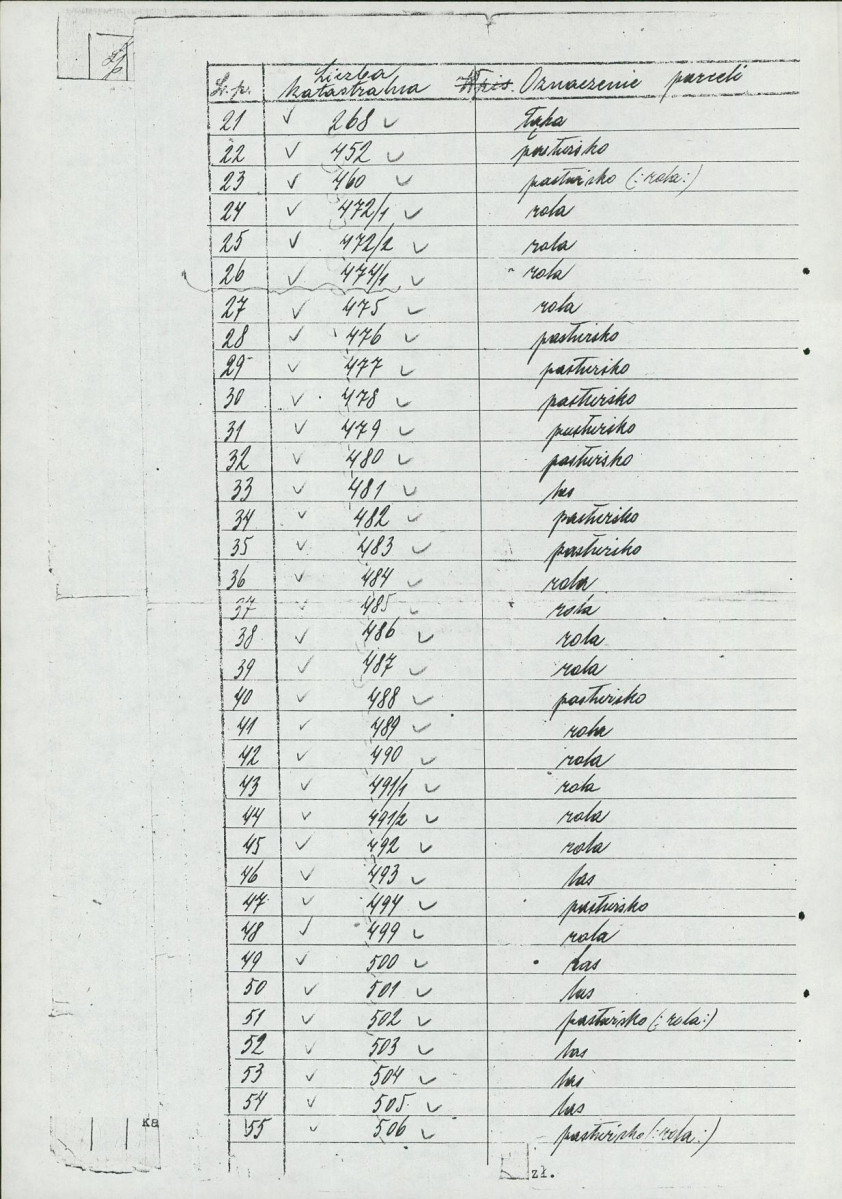 L.p. Liczba katastralna Wpis. Oznaczenie parceli
21 268 łąka
22 452 pastwisko
23 460 pastwisko (:rola:)
24 472/1 rola
25 472/2 rola
26 474/1 rola
27 475 rola
28 476 pastwisko
29 477 pastwisko
30 478 pastwisko
31 479 pastwisko
32 480 pastwisko
33 481 las
34 482 pastwisko
35 483 pastwisko
36 484 rola
37 485 rola
38 486 rola
39 487 rola
40 488 pastwisko
41 489 rola
42 490 rola
43 491/1 rola
44 491/2 rola
45 492 rola
46 493 las
47 494 pastwisko
48 499 rola
49 500 las
50 501 las
51 502 pastwisko (:rola:)
52 503 las
53 504 las
54 505 las
55 506 pastwisko (:rola:)
ka
zł.